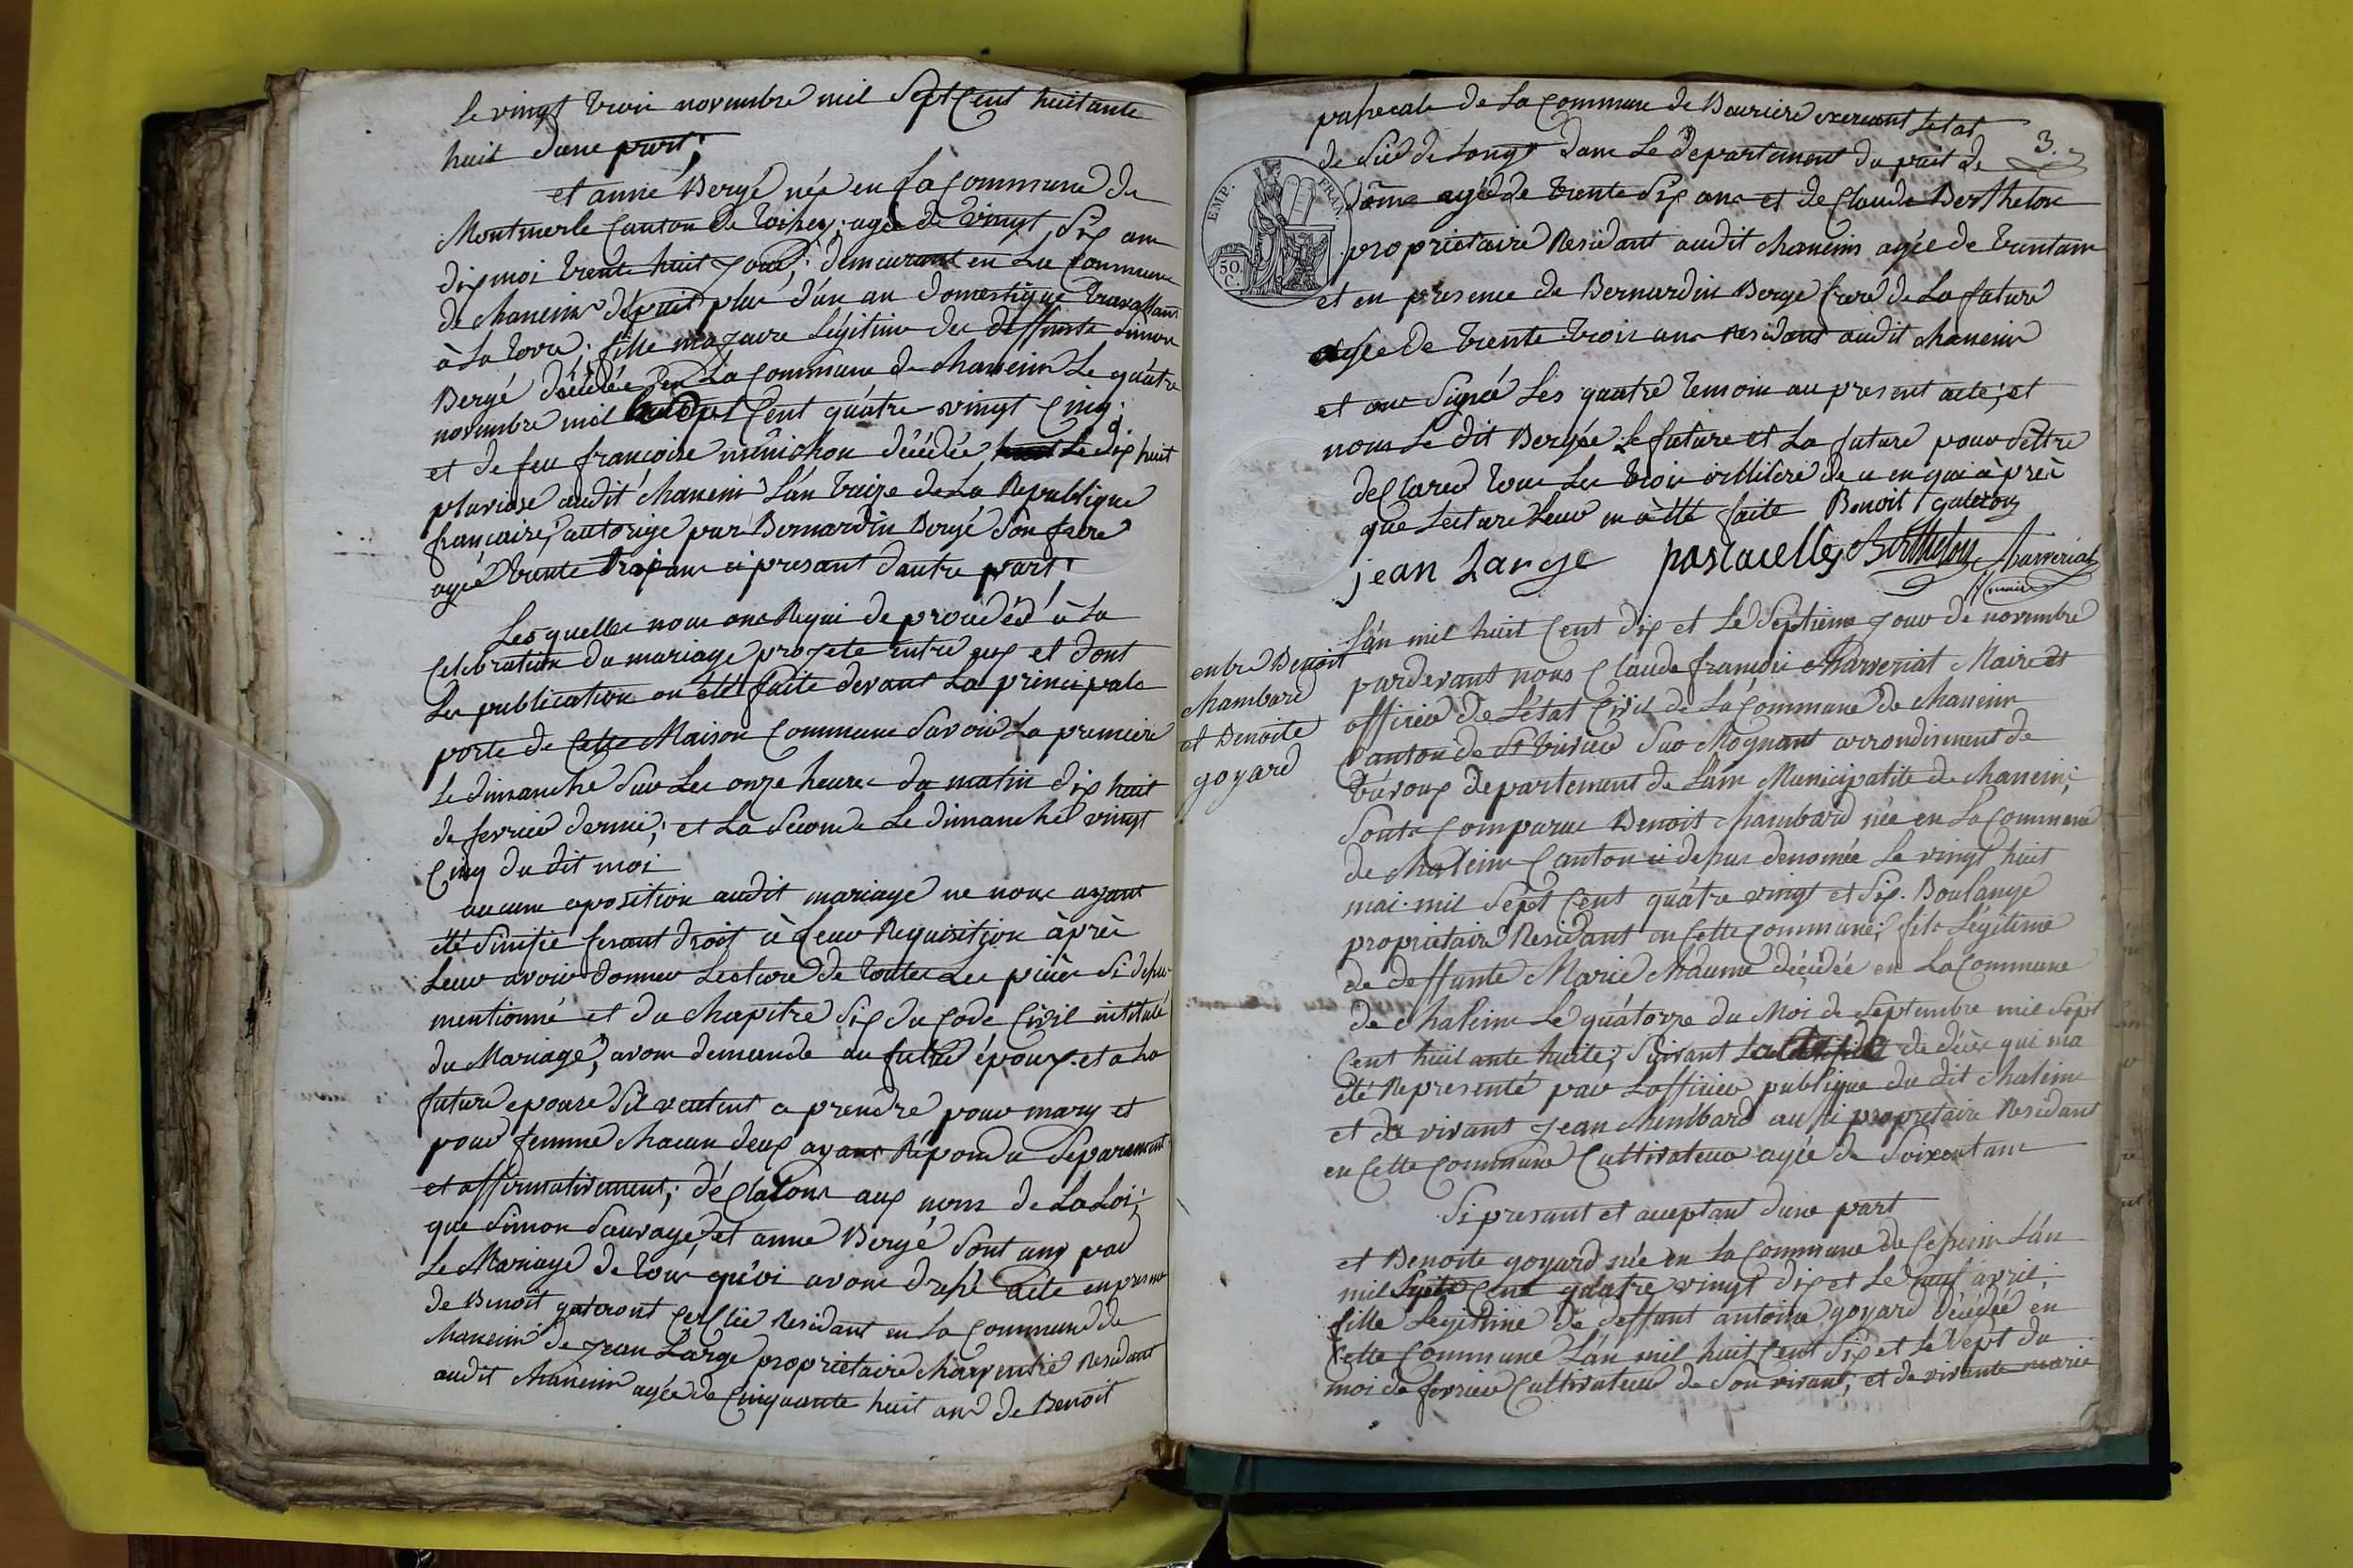 le vingt trois novembre mil Sept Cent huitante
huit dune part;
et anne Bergé née en la Commune de
Montmerle Canton de toisey; agée de vingt Six ans
dix moi trente huit jour; demeurant en La Commune
de chaneins dépuit plus d'un an domestique travaillant
à La terre; fille majeure légitime de deffunte Simon
Bergé décédée en La Commune de chaneins Le quatre
novembre mil Sept Cent quátre vingt Cinq;
et de feu françoise mûnichon décédée Le dix huit
pluviose audit chaneins L'án traize de La Republique
francaise; autorize par Bernardin Bergé Son frere
agée trente trois ans ci presant dautre part;
Lesquelles nous ons Requi de procédéd à La
Celebration du mariage projete entre eux et dont
Les publication on été faite devant La principale
porte de Cette Maison Commune Savoir La premiere
Le dimanche Sur Les onze heures du matin dix huit
de fevrier dernié; et La Seconde Le dimanche vingt
Cinq du dit moi
aucune oposition audit mariage ne nous ayant
été Sinifie fesant droit à Leur Requisition àprès
Leur avoir donner Lecture de toutes Les piéces Si desus
mentionné et du chapitre Six du Code Civil intitulé
du Mariage, avons demande au futur époux et a La
future epouse Sil veulent ce prendre pour mary et
pour femme chacun deux ayant Répondu Séparement
et affirmativement; déclarons aux nom de La Loi;
que Simon Sauvage et anne Bergé Sont uny par
Le Mariage de tous quoi avons dressé acte en presence
de Benoit gateront Cerclié Residant en La Commune de
chaneins de Jean Large proprietaire charpentié Residant
audit chaneins agée de Cinquante huit ans de Benoit
3.
de La Commune de exercant Letat
de Sied de Longs dans Le departement du puit de
dôme agée de trente Six ans et de Claude Berthelon
proprietaire Residant audit chaneins agée de trantans
et en presence de Bernardin Berge frere de La future
agée de trente trois ans residant audit chaneins
et ons Signé Les quatre temoins au present acte; et
nous Le dit Bergée Le future et La future pour Sêttre
declared tous Les trois illiteré de ce enquis àprès
que Lecture Leur en à été faite Benoit gateron
jean Large pascalelles Berthelon Charveriat
maire
EMP. FRAN.
50 C.
entre Benoit
chambard
et Benoite
goyard
L'án mil huit Cent dix et Le Septieme jour de novembre
pardevant nous Claude francois Charveriat Maire et
officier de L'état Civil de La Commune de chaneins
Canton de St trivier Sur Mognant arrondissment de
trévoux departement de L'ain Municipalité de chaneins;
Sont Comparue Benoit chambard née en La Commune
de chaleins Canton ci desus denomée Le vingt huit
mai mil Sépt Cent quatre vingt et Six. Boulangé
proprietaire Residant en Cette Commune; fils Légitime
de deffunte Marie chaumé décédée en La Commune
de chaleins Le quátorze du Moi de Septembre mil Sept
Cent huitante huite; Suivant de décès qui ma
été Representé par Lofficier publique du dit chaleins
et de vivant Jean chembard aussi proprietaire Residant
en Cette Commune Cultivateur agée de Soixantans
Si presant et aceptant dune part
et Benoite goyard née en La Commune de Cesseins L'án
mil Sept Cent quatre vingt dix et Le neuf avril;
fille Legitime de deffunt antoine goyard décédée en
Cette Commune L'án mil huit Cent Six et Le Sept du
moi de fevrier Cultivateur de Son vivant; et de vivante marie